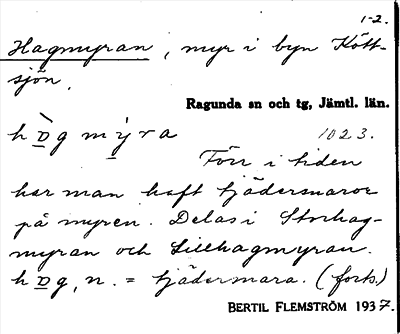 1-2.
Hagmyran, myr i byn Kött-
sjön.
Ragunda sn och tg, Jämtl. län.
h D̲̀ g m y̲̍ r a 1023.
Förr i tiden
har man haft tjädermaror
på myren. Delas i Storhag-
myran och Lillhagmyran.
h D̲ g, n. = tjädermara. (forts.)
BERTIL FLEMSTRÖM 1937.